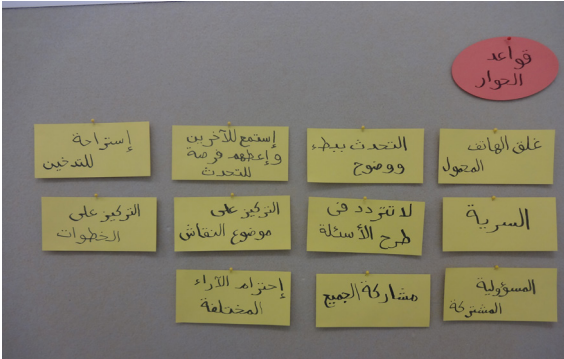 قواعد
الحوار
غلق الهاتف
المحمول
التحدث ببطء
ووضوح
إستمع للآخرين
وإعطهم فرصة
للتحدث
إستراحة
للتدخين
السرية
لا تتردد فى
طرح الأسئلة
التركيز على
موضوع النقاش
التركيز على
الخطوات
المسؤولية
المشتركة
مشاركة الجميع
إحترام الآراء
المختلفة